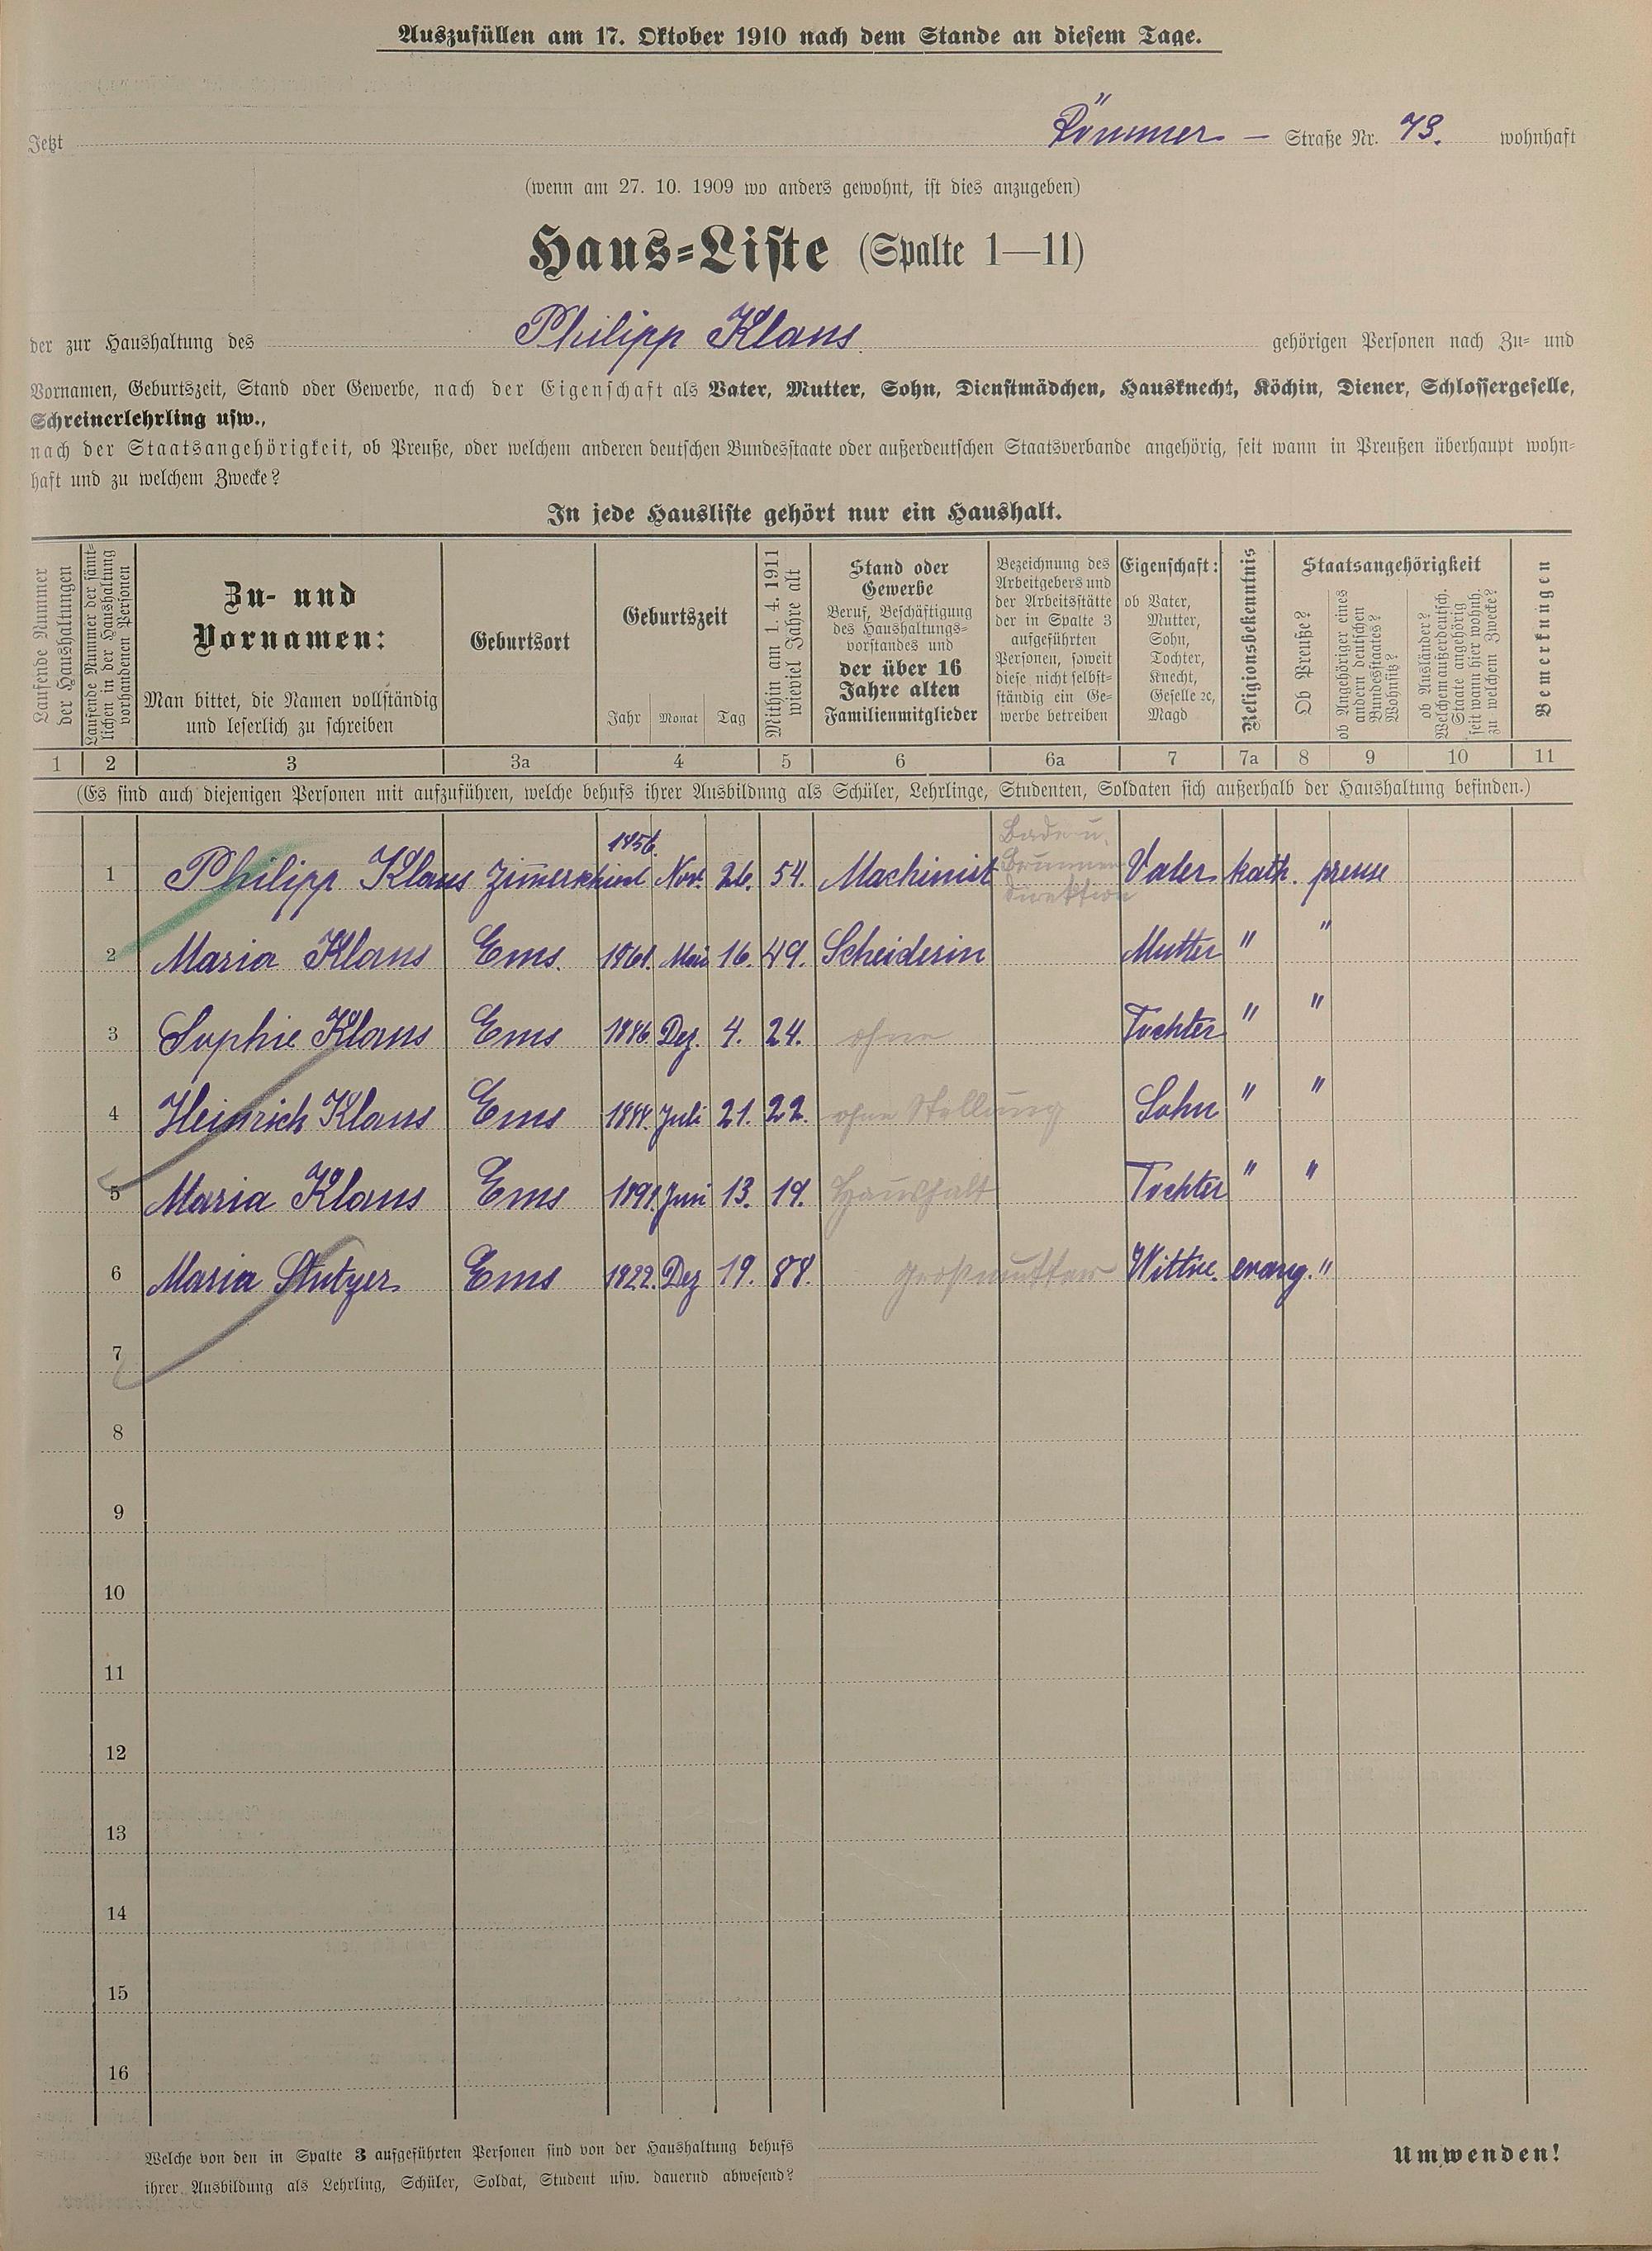 Auszufüllen am 17. Oktober 1910 nach dem Stande an diesem Tage.
Jetzt Römmer – Straße Nr. 73. wohnhaft
(wenn am 27. 10. 1909 wo anders gewohnt, ist dies anzugeben)
Haus=Liste (Spalte 1—11)
der zur Haushaltung des Philipp Klaus gehörigen Personen nach Zu= und
Vornamen, Geburtszeit, Stand oder Gewerbe, nach der Eigenschaft als Vater, Mutter, Sohn, Dienstmädchen, Hausknecht, Köchin, Diener, Schlossergeselle,
Schreinerlehrling usw.,
nach der Staatsangehörigkeit, ob Preuße, oder welchem anderen deutschen Bundesstaate oder außerdeutschen Staatsverbande angehörig, seit wann in Preußen überhaupt wohn=
haft und zu welchem Zwecke?
In jede Hausliste gehört nur ein Haushalt.
Laufende Nummer
der Haushaltungen
Laufende Nummer der sämt=
lichen in der Haushaltung
vorhandenen Personen
Zu- und
Vornamen:
Man bittet, die Namen vollständig
und leserlich zu schreiben
Geburtsort
Geburtszeit
Jahr Monat Tag
Mithin am 1. 4. 1911
wieviel Jahre alt
Stand oder
Gewerbe
Beruf, Beschäftigung
des Haushaltungs=
vorstandes und
der über 16
Jahre alten
Familienmitglieder
Bezeichnung des
Arbeitgebers und
der Arbeitsstätte
der in Spalte 3
aufgeführten
Personen, soweit
diese nicht selbst=
ständig ein Ge=
werbe betreiben
Eigenschaft:
ob Vater,
Mutter,
Sohn,
Tochter,
Knecht,
Geselle 2c,
Magd
Religionsbekenntnis
Staatsangehörigkeit
Ob Preuße?
ob Angehöriger eines
andern deutschen
Bundesstaates?
Wohnsitz?
ob Ausländer?
Welchem außerdeutsch.
Staate angehörig
seit wann hier wohnh.
zu welchem Zwecke?
Bemerkungen
1 2 3 3a 4 5 6 6a 7 7a 8 9 10 11
(Es sind auch diejenigen Personen mit aufzuführen, welche behufs ihrer Ausbildung als Schüler, Lehrlinge, Studenten, Soldaten sich außerhalb der Haushaltung befinden.)
1 Philipp Klaus 1856. Nov. 26. 54. Machinist Bade u. Brunnen Direktion Vater kath. preuse
2 Maria Klaus Ems. 1861. Mai 16. 49. Scheiderin Mutter " "
3 Sophie Klaus Ems 1886 Dez. 4. 24. ohne Tochter " "
4 Heinrich Klaus Ems 1888. Juli 21. 22. ohne Stellung Sohn " "
5 Maria Klaus Ems 1891. Juni 13. 19. Haushalt Tochter " "
6 Maria Stutzer Ems 1822. Dez 19. 88. Großmutter Wittwe. evang. "
7
8
9
10
11
12
13
14
15
16
Welche von den in Spalte 3 aufgeführten Personen sind von der Haushaltung behufs
ihrer Ausbildung als Lehrling, Schüler, Soldat, Student usw. dauernd abwesend?
Umwenden!